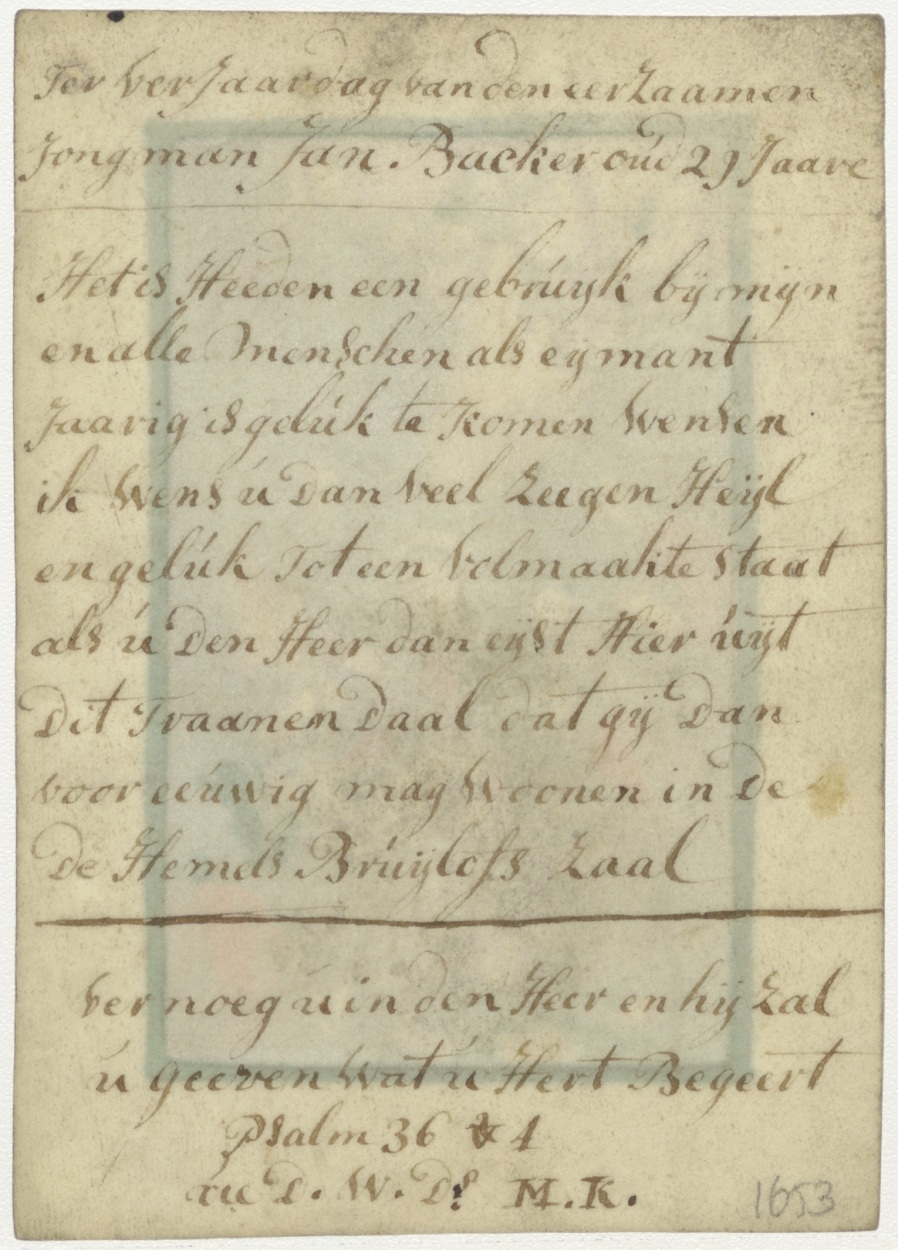 Ter Verjaardag van den eerzaamen
Jongman Jan. Backer oúd 29 Jaare
Het is Heeden een gebrúyk bÿ mÿn
en alle Menschen als eymant
Jaarig is gelúk te komen Wensen
ik Wens ú Dan Veel Zeegen Heÿl
en gelúk Tot een Volmaakte Staat
als ú Den Heer dan eÿst Hier úÿt
Dit Traanen Daal dat gÿ Dan
voor eeúwig mag Woonen in De
De Hemels Brúÿlofs Zaal
Vernoeg u in den Heer en hÿ Zal
ú geeven Wat ú Hert Begeert
Psalm 36 V 4
D. W. Ds M.K.
1653